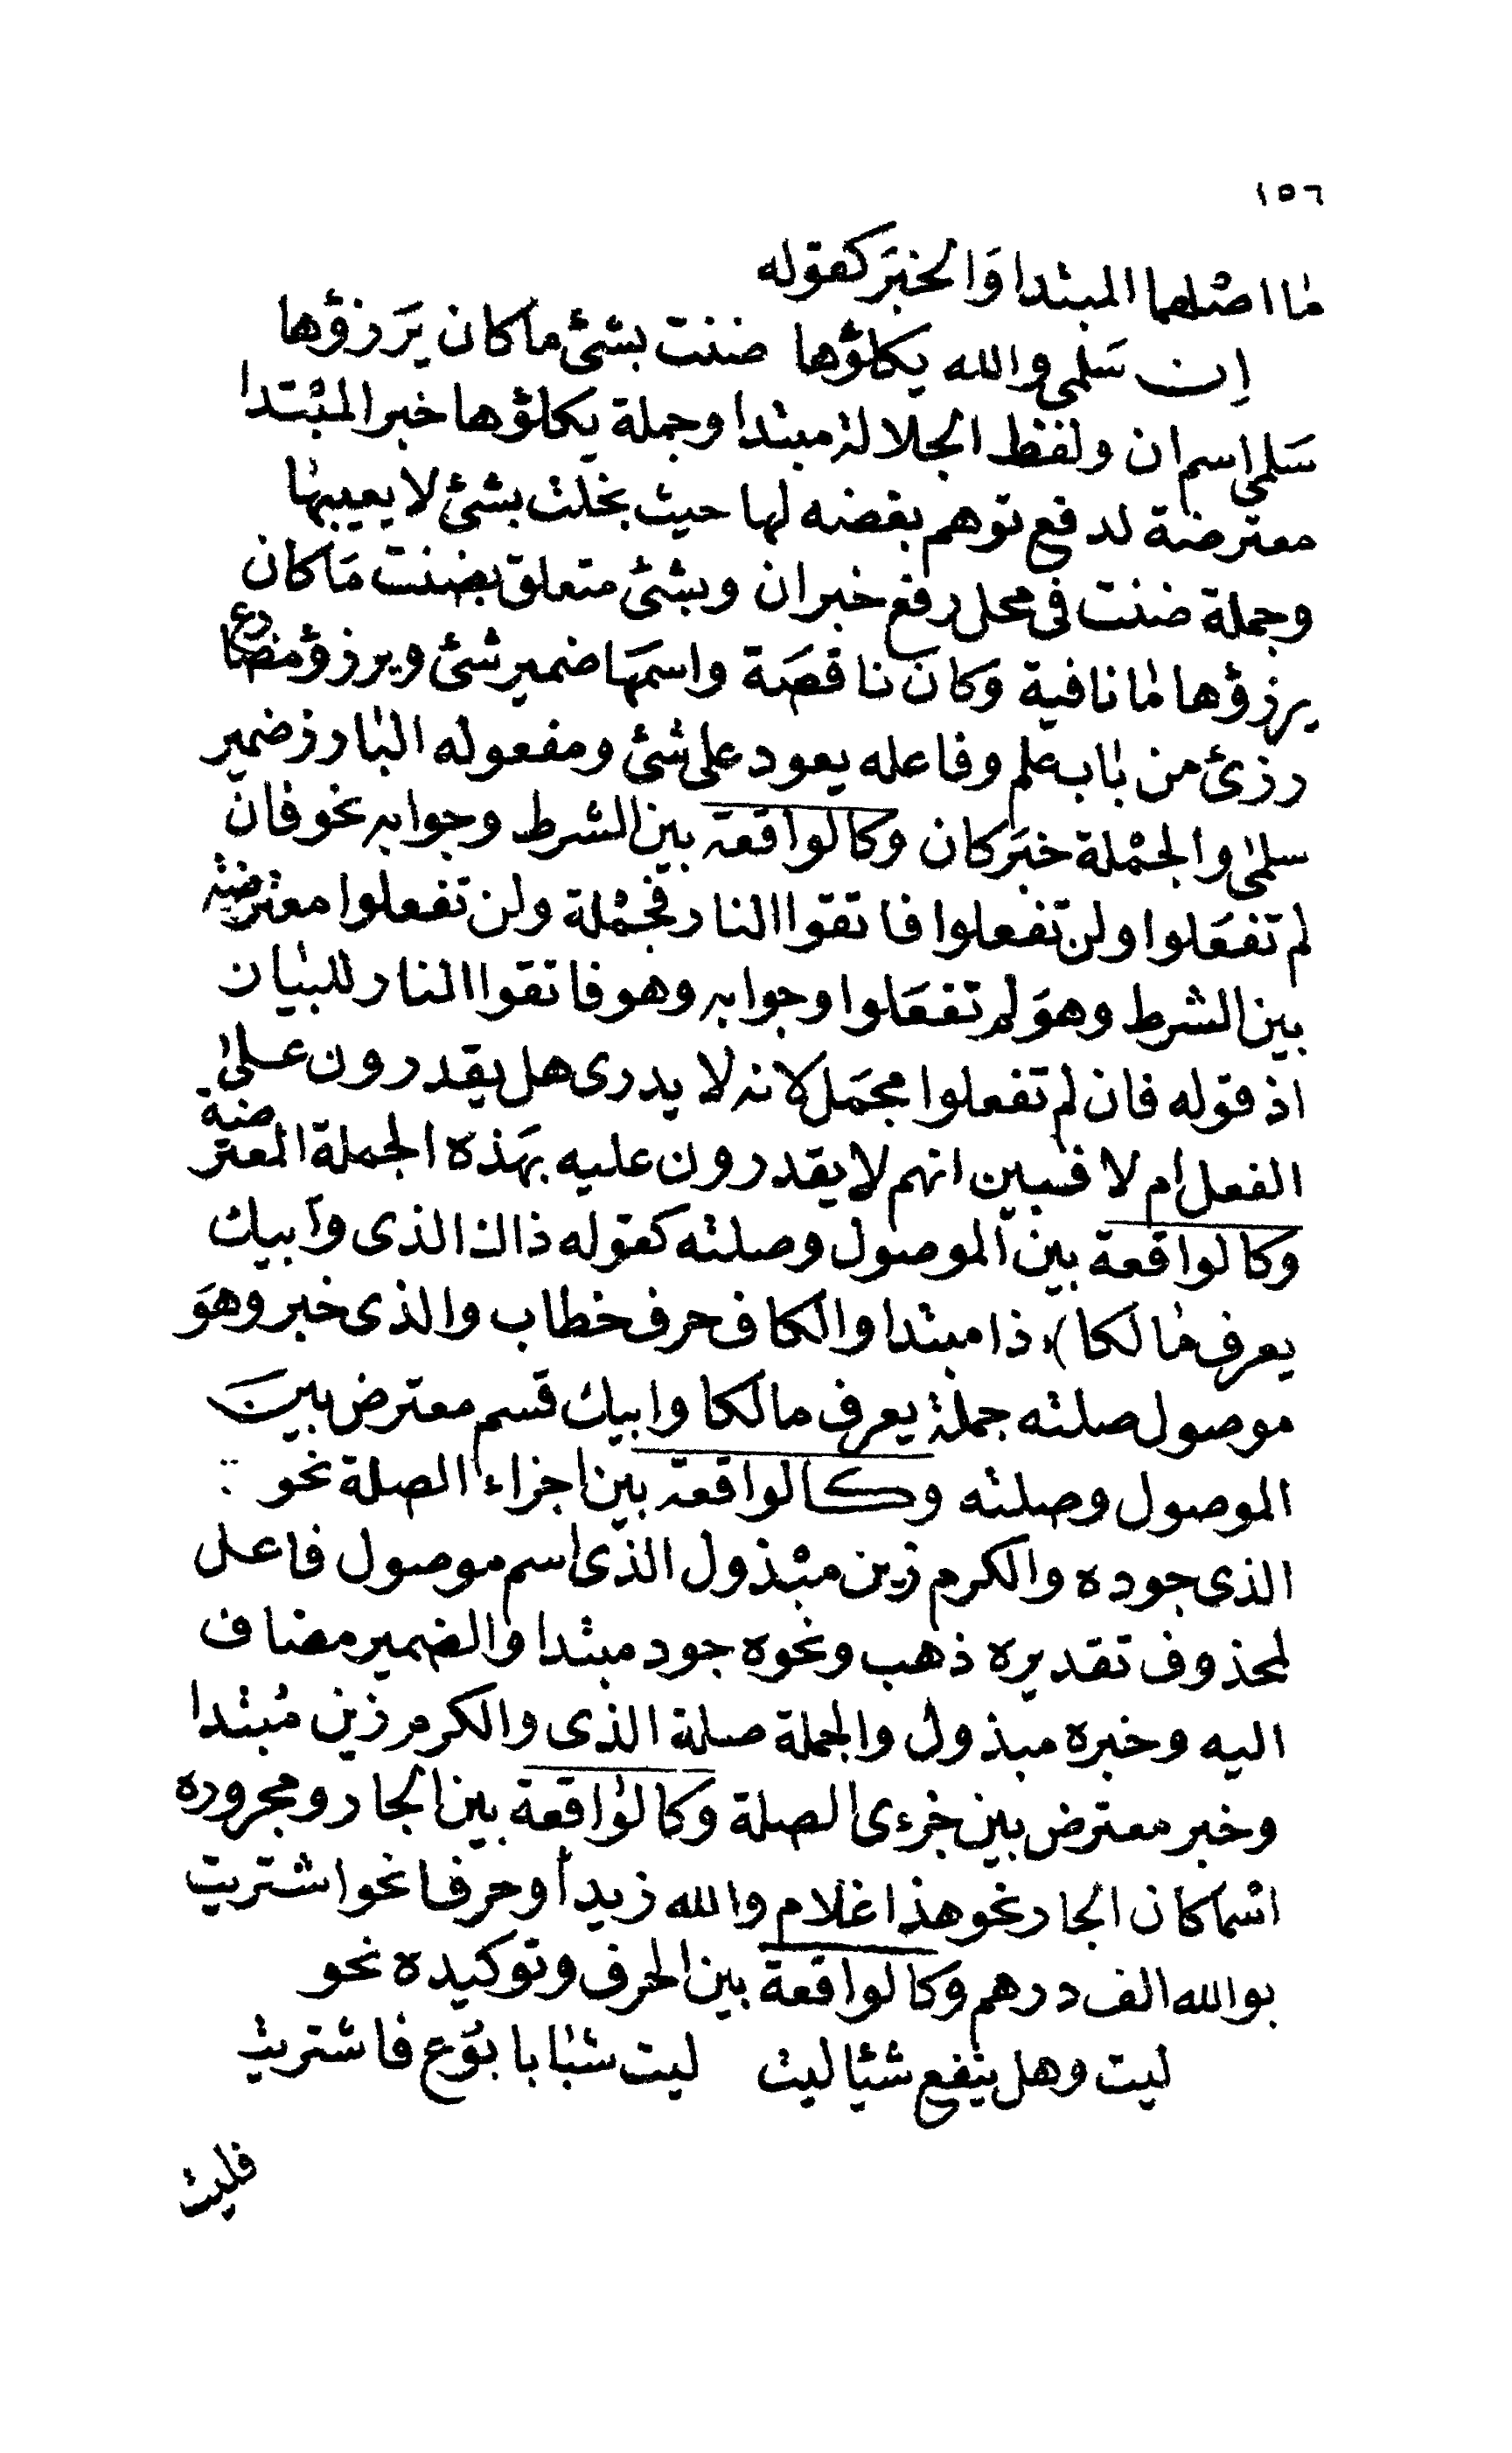 ١٥٦
مٰا اصْلهما المبتدا وَالخبَر كقوله
اِن سَلمى والله يكلؤها ضننت بشئ ما كان يَرزؤها
سَلمى اسم ان ولفظ الجلالة مبتدا وجملة يكلؤها خبر المبْتدا
معترضة لدفع توهم بغضه لها حيث بخلت بشئ لا يعيبهٰا
وجملة ضننت فى محل رفع خبر ان وبشئ متعلق بضننت مَا كان
يرزؤها مٰا نافية وَكان ناقصَة واسمَها ضمير شئ ويرزؤ مضارع
رزئ من بٰاب علم وفاعله يعود على شئ ومفعوله البٰارز ضمير
سلمٰى والجمْلة خبَر كان وكالواقعة بين الشرط وجوابه نحو فان
لم تفعَلوا ولن تفعلوا فاتقوا النار فجمْلة ولن تفعلوا معترضة
بين الشرط وهوَ لم تفعَلوا وجوابه وهو فاتقوا النار للبيٰان
اذ قوله فان لم تفعلوا مجمَل لانه لا يدرى هل يقدرون علىٰ
الفعل ام لا فبين انهم لا يقدرون عليه بهَذه الجملة المعترضة
وكالواقعة بين الموصول وصلته كقوله ذاك الذى وأبيك
يعرف مٰالكا ) ذا مبتدا والكاف حرف خطاب والذى خبر وهوَ
موصول صلته جملة يعرف مالكا وابيك قسم معترض بينَ
الموصول وصلته وكالواقعة بين اجزاء الصلة نحو
الذى جوده والكرم زين مبْذول الذى اسم موصول فاعل
لمحذوف تقديره ذهب ونحوه جود مبتدا والضمير مضاف
اليه وخبره مبذول والجملة صلة الذى والكرم زين مُبتدا
وخبر معترض بين جزءى الصلة وكالوٰاقعة بين الجار ومجروره
اسْما كان الجار نحو هذا غلام والله زيدأ وحرفا نحو اشتريت
بوالله الف درهم وَكالواقعة بين الحرف وتوكيده نحو
ليت وهل ينفع شئا ليت ليت شبٰابا بُوع فاشتريت
فليت